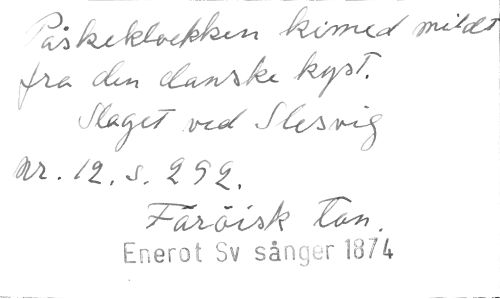 Påskeklokken kimed mildt
fra den danske kyst.
Slaget ved Slesvig
Nr. 12. s. 292.
Färöisk ton.
Enerot Sv sånger 1874